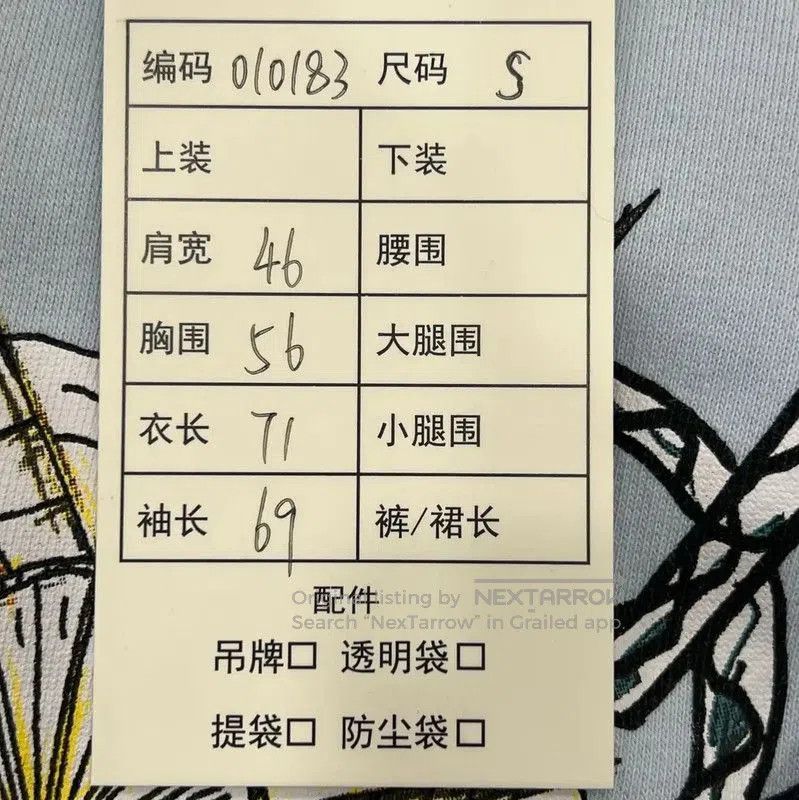 编码 010183 尺码 S
上装 下装
肩宽 46 腰围
胸围 56 大腿围
衣长 71 小腿围
袖长 69 裤/裙长
配件
Original listing by NEXTARROW
Search "NexTarrow" in Grailed app.
吊牌□ 透明袋□
提袋□ 防尘袋□